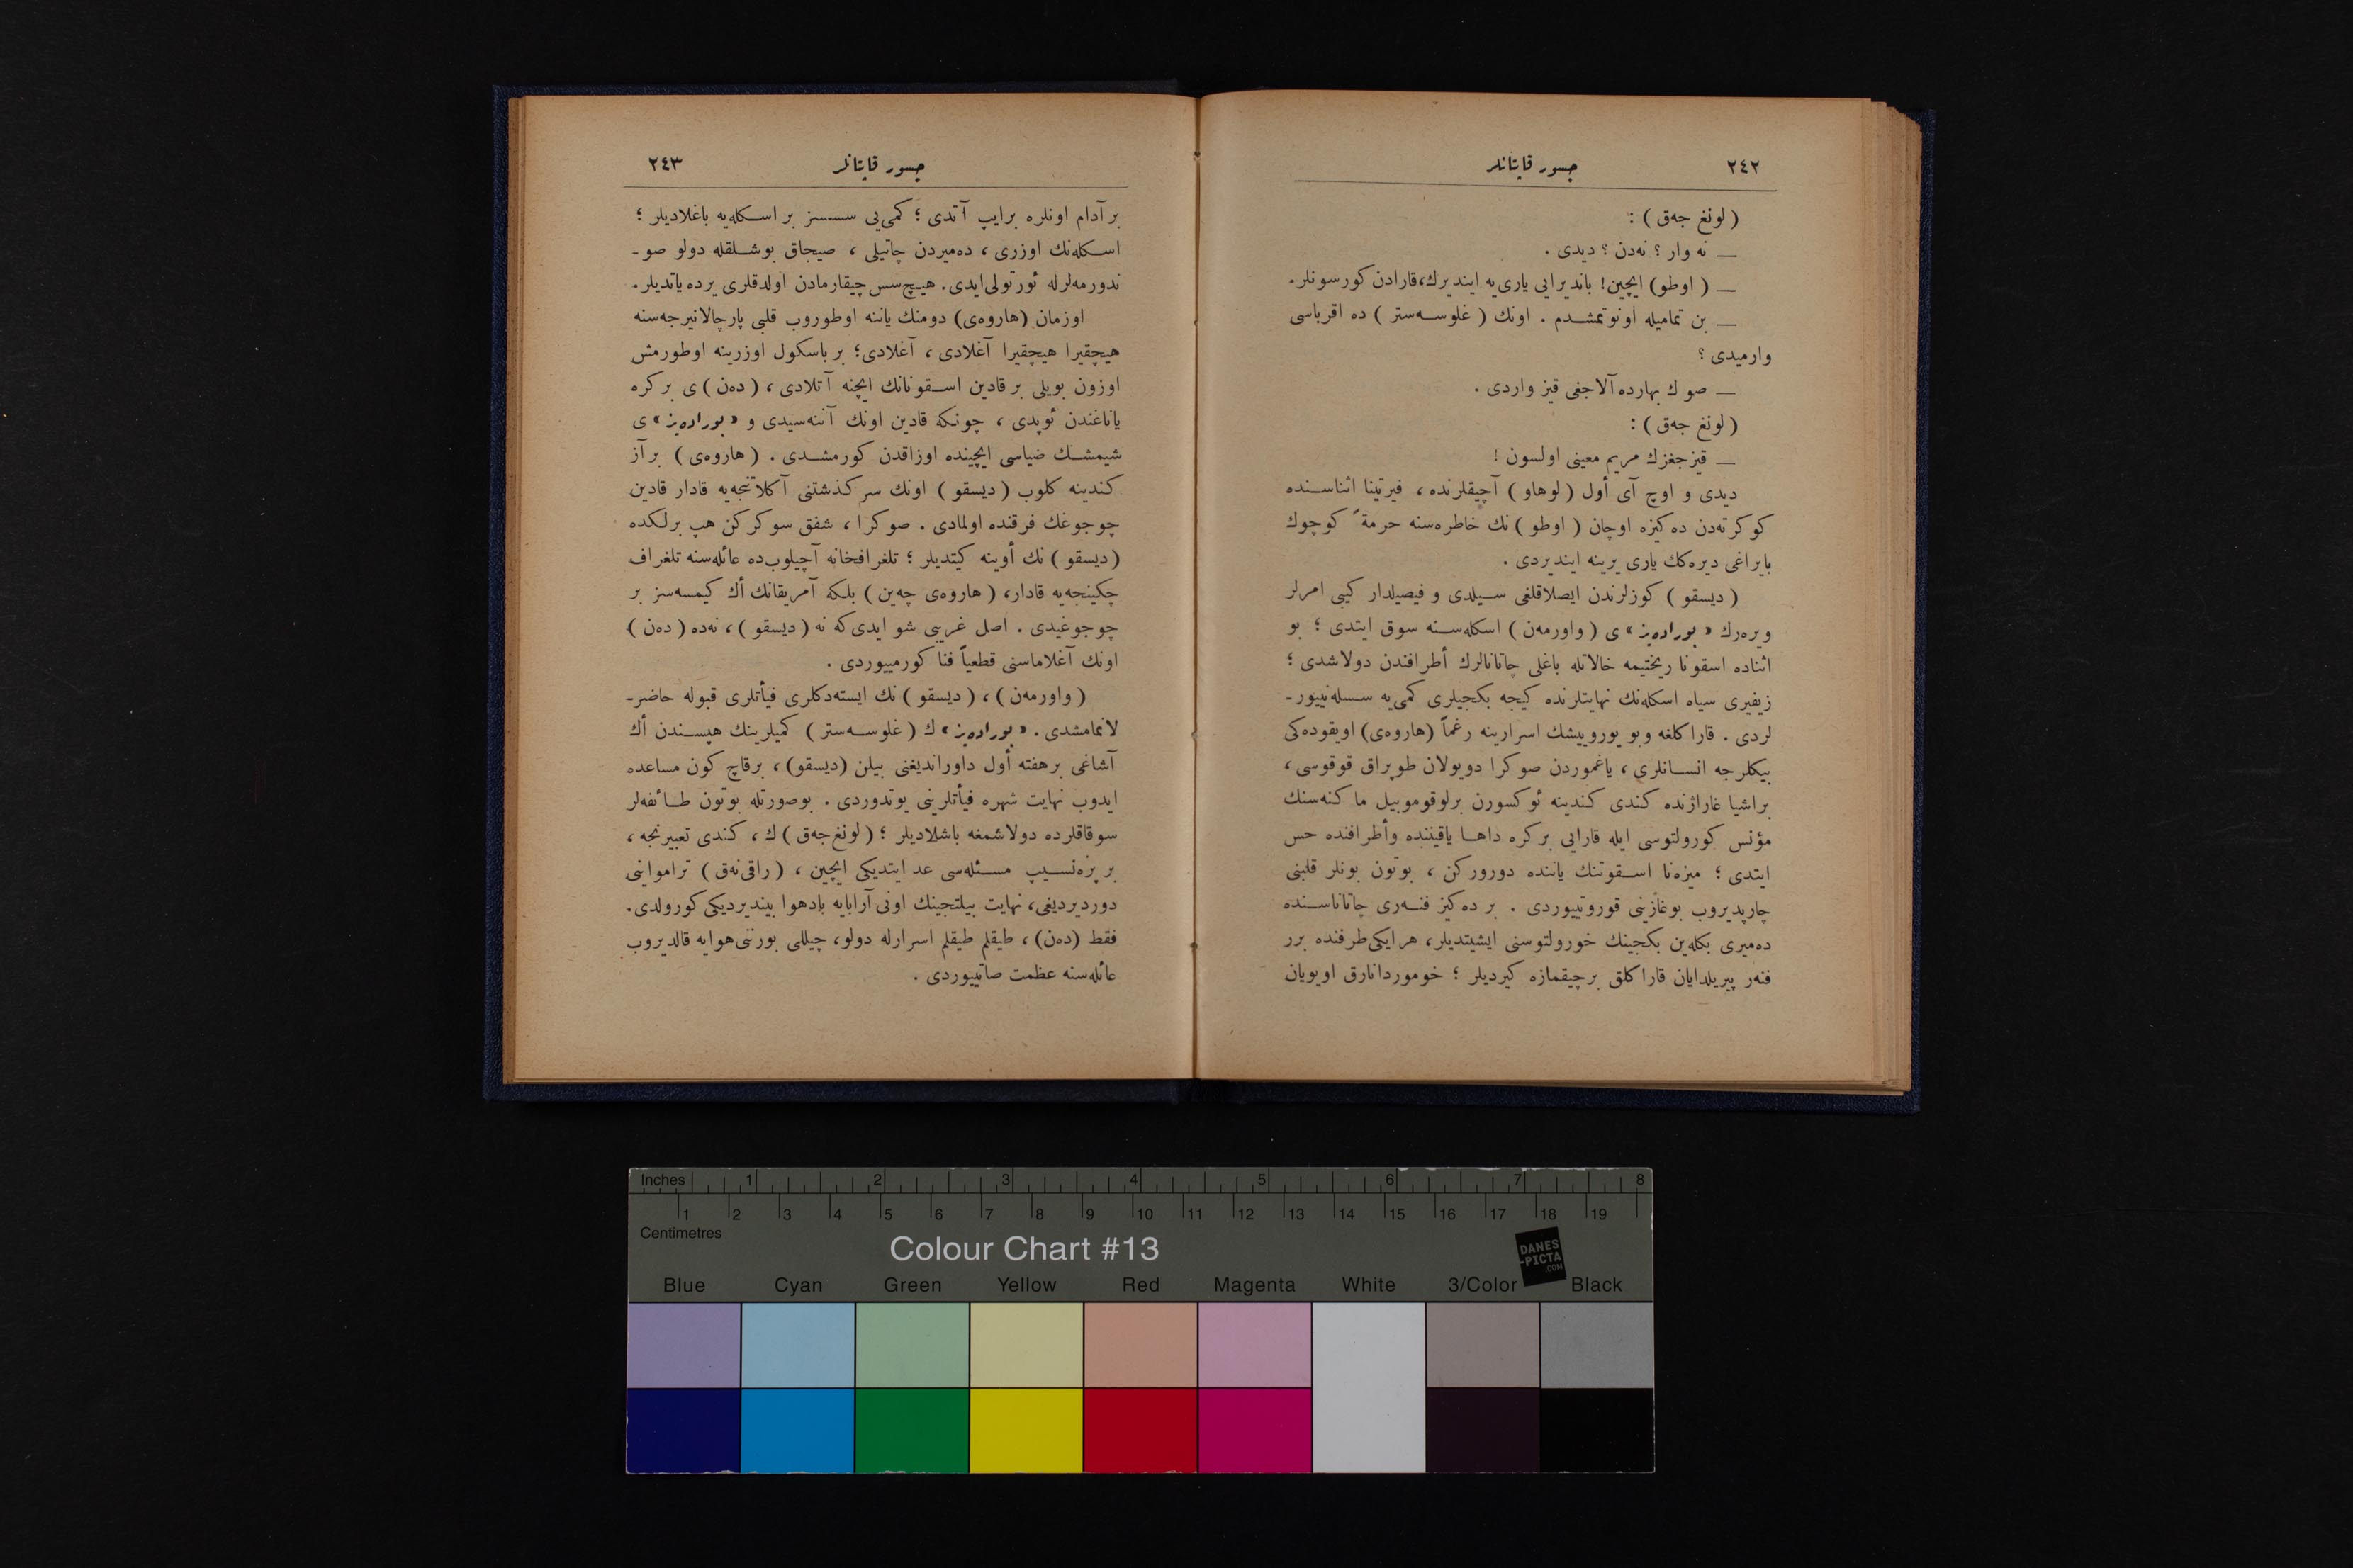 ٢٤٢
جسور قاپتانلر
( لونغ جەق ) :
— نه وار ؟ نەدن ؟ دیدی .
— ( اوطو ) ایچین! باندیرایی یاری‌یه ایندیرك، قارادن كورسونلر.
— بن تمامیله اونوتمشدم . اونك ( غلوسه‌ستر ) ده اقرباسی
وارمیدی ؟
— صوك بهارده آلاجغی قیز واردی .
( لونغ جەق ) :
— قیزجغزك مریم معینی اولسون !
دیدی و اوچ آی أول ( لوهاو ) آچیقلرنده ، فیرتینا اثناسنده
كوكرته‌دن ده‌كیزه اوچان ( اوطو ) نك خاطره‌سنه حرمةً كوچوك
بایراغی دیره‌كك یاری یرینه ایندیردی .
( دیسقو ) كوزلرندن ایصلاقلغی سیلدی و فیصیلدار كیبی امرلر
ویره‌رك « بوراده‌یز » ی ( واورمه‌ن ) اسكله‌سنه سوق ایتدی ؛ بو
اثناده اسقونا ریختیمه خالاتله باغلی چاتانالرك أطرافندن دولاشدی ؛
زیفیری سیاه اسكله‌نك نهایتلرنده كیجه بكجیلری كمی‌یه سسله‌نییور-
لردی . قاراكلغه وبو یورویشك اسرارینه رغماً (هاروه‌ی) اویقوده‌كی
بیكلرجه انسانلری ، یاغموردن صوكرا دویولان طوپراق قوقوسی ،
براشیا غاراژنده كندی كندینه ئوكسورن برلوقوموبیل ما كنه‌سنك
مؤنس كورولتوسی ایله قارایی بركره داها یاقیننده وأطرافنده حس
ایتدی ؛ میزه‌نا اسقوتنك یاننده دوروركن ، بوتون بونلر قلبنی
چارپدیروب بوغازینی قوروتییوردی . بر ده‌كیز فنه‌ری چاتاناسنده
ده‌میری بكله‌ین بكجینك خورولتوسنی ایشیتدیلر، هر ایكی طرفنده برر
فنه‌ر پیریلدایان قاراكلق برچیقمازه كیردیلر ؛ خوموردانارق اویویان
٢٤٣
جسور قاپتانلر
بر آدام اونلره برایپ آتدی ؛ كمی‌یی سسسز بر اسكله‌یه باغلادیلر ؛
اسكله‌نك اوزری ، ده‌میردن چاتیلی ، صیجاق بوشلقله دولو صو-
ندورمه‌لرله ئورتولی ایدی. هیچ سس چیقارمادن اولدقلری یرده یاتدیلر.
اوزمان (هاروه‌ی) دومنك یاننه اوطوروب قلبی پارچالانیرجه‌سنه
هیچقیرا هیچقیرا آغلادی ، آغلادی؛ بر باسكول اوزرینه اوطورمش
اوزون بویلی بر قادین اسقونانك ایچنه آتلادی ، ( ده‌ن ) ی بركره
یاناغندن ئوپدی ، چونكه قادین اونك آننه‌سیدی و « بوراده‌یز » ی
شیمشك ضیاسی ایچینده اوزاقدن كورمشدی . ( هاروه‌ی ) بر آز
كندینه كلوب ( دیسقو ) اونك سركذشتنی آكلاتنجه‌یه قادار قادین
چوجوغك فرقنده اولمادی . صوكرا ، شفق سوكركن هپ برلكده
( دیسقو ) نك أوینه كیتدیلر ؛ تلغرافخانه آچیلوب‌ده عائله‌سنه تلغراف
چكینجه‌یه قادار، ( هاروه‌ی چه‌ین ) بلكه آمریقانك أك كیمسه‌سز بر
چوجوغیدی . اصل غریبی شو ایدی كه نه ( دیسقو ) ، نه‌ده ( ده‌ن )
اونك آغلاماسنی قطعیاً فنا كورمییوردی .
( واورمه‌ن ) ، ( دیسقو ) نك ایسته‌دكلری فیأتلری قبوله حاضر-
لانمامشدی . « بوراده‌یز » ك ( غلوسه‌ستر ) كمیلرینك هپسندن أك
آشاغی برهفته أول داوراندیغنی بیلن (دیسقو) ، برقاچ كون مساعده
ایدوب نهایت شهره فیأتلرینی یوتدوردی . بوصورتله بوتون طائفه‌لر
سوقاقلرده دولاشمغه باشلادیلر ؛ ( لونغ جەق ) ك ، كندی تعبیرنجه ،
بر پره‌نسیپ مسئله‌سی عد ایتدیكی ایچین ، ( راقی‌نه‌ق ) تراموایی
دوردیردیغی، نهایت بیلتجینك اونی آرابایه بادهوا بیندیردیكی كورولدی.
فقط (ده‌ن) ، طیقلم طیقلم اسرارله دولو، چیللی بورننی هوایه قالدیروب
عائله‌سنه عظمت صاتییوردی .
Inches 1 2 3 4 5 6 7 8
1 2 3 4 5 6 7 8 9 10 11 12 13 14 15 16 17 18 19
Centimetres
Colour Chart #13
DANES
-PICTA
.COM
Blue Cyan Green Yellow Red Magenta White 3/Color Black